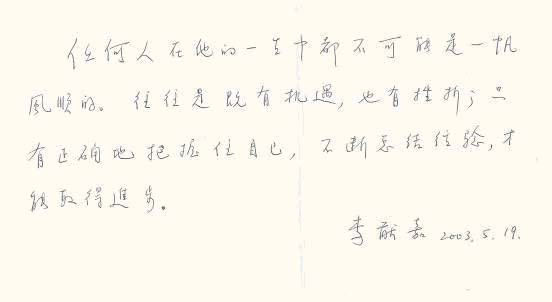 任何人在他的一生中都不可能是一帆
風順的。往往是既有机遇，也有挫折；只
有正确地把握住自己，不断总结经验，才
能取得進步。
李献嘉 2003.5.19.